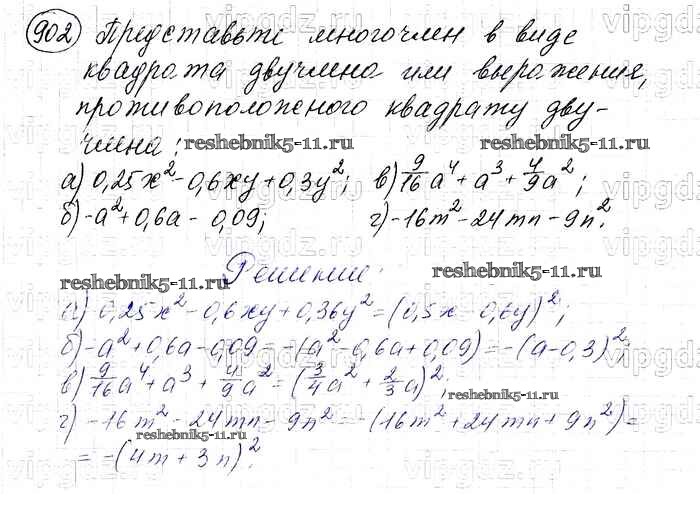 902 Представьте многочлен в виде
квадрата двучлена или выражения,
противоположного квадрату дву-
члена:
reshebnik5-11.ru reshebnik5-11.ru
а) 0,25x² - 0,6xy + 0,3y²; в) 9/16a⁴ + a³ + 4/9a²;
б) -a² + 0,6a - 0,09; г) -16m² - 24mn - 9n².
Решение:
reshebnik5-11.ru reshebnik5-11.ru
а) 0,25x² - 0,6xy + 0,36y² = (0,5x - 0,6y)²;
б) -a² + 0,6a - 0,09 = -(a² - 0,6a + 0,09) = -(a - 0,3)²
в) 9/16a⁴ + a³ + 4/9a² = (3/4a² + 2/3a)²;
reshebnik5-11.ru
г) -16m² - 24mn - 9n² = -(16m² + 24mn + 9n²) =
reshebnik5-11.ru
= -(4m + 3n)².
vipgdz.ru